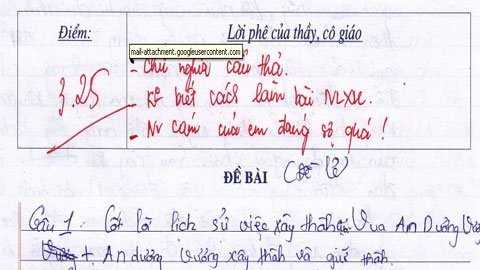 Điểm:
Lời phê của thầy, cô giáo
mail-attachment.googleusercontent.com
3.25
- Chữ nghĩa cẩu thả.
- Ko biết cách làm bài NLXH.
- Nv cảm của em đáng sợ quá!
ĐỀ BÀI
(Đề lẻ)
Câu 1: Cốt lõi lịch sử việc xây thành Vua An Dương Vương
+ An dương Vương xây thành và giữ thành.